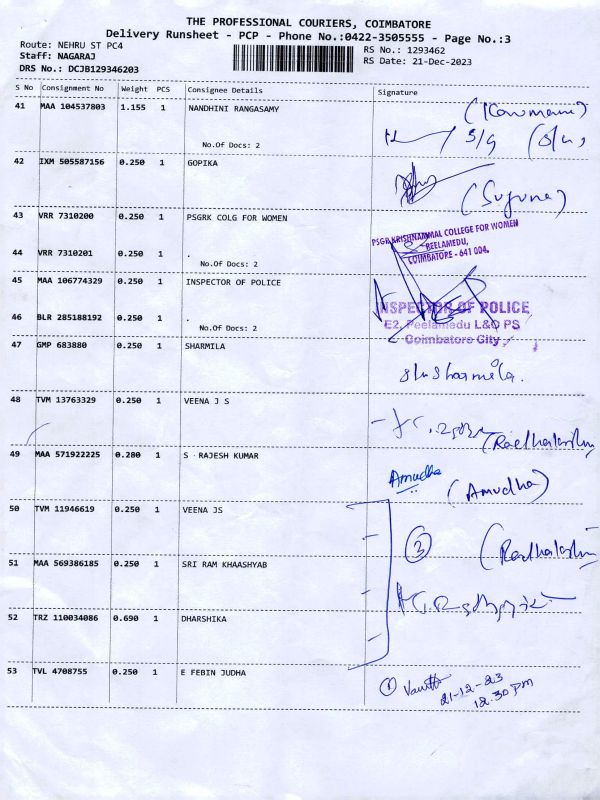 THE PROFESSIONAL COURIERS, COIMBATORE
Delivery Runsheet - PCP - Phone No.:0422-3505555 - Page No.:3
Route: NEHRU ST PC4
RS No.: 1293462
Staff: NAGARAJ
RS Date: 21-Dec-2023
DRS No.: DCJB129346203
S No Consignment No Weight PCS Consignee Details Signature
41 MAA 104537803 1.155 1 NANDHINI RANGASAMY
S/g
No.Of Docs: 2
42 IXM 505587156 0.250 1 GOPIKA
(Suguna)
43 VRR 7310200 0.250 1 PSGRK COLG FOR WOMEN
PSGR KRISHNAMMAL COLLEGE FOR WOMEN
PEELAMEDU,
COIMBATORE - 641 004.
44 VRR 7310201 0.250 1 .
No.Of Docs: 2
45 MAA 106774329 0.250 1 INSPECTOR OF POLICE
INSPECTOR OF POLICE
E2, Peelamedu L&O PS
Coimbatore City
46 BLR 285188192 0.250 1 .
No.Of Docs: 2
47 GMP 683880 0.250 1 SHARMILA
Sharmila.
48 TVM 13763329 0.250 1 VEENA J S
49 MAA 571922225 0.280 1 S RAJESH KUMAR
Amudha
(Amudha)
50 TVM 11946619 0.250 1 VEENA JS
3
51 MAA 569386185 0.250 1 SRI RAM KHAASHYAB
52 TRZ 110034086 0.690 1 DHARSHIKA
53 TVL 4708755 0.250 1 E FEBIN JUDHA
21-12-23
12.30 pm